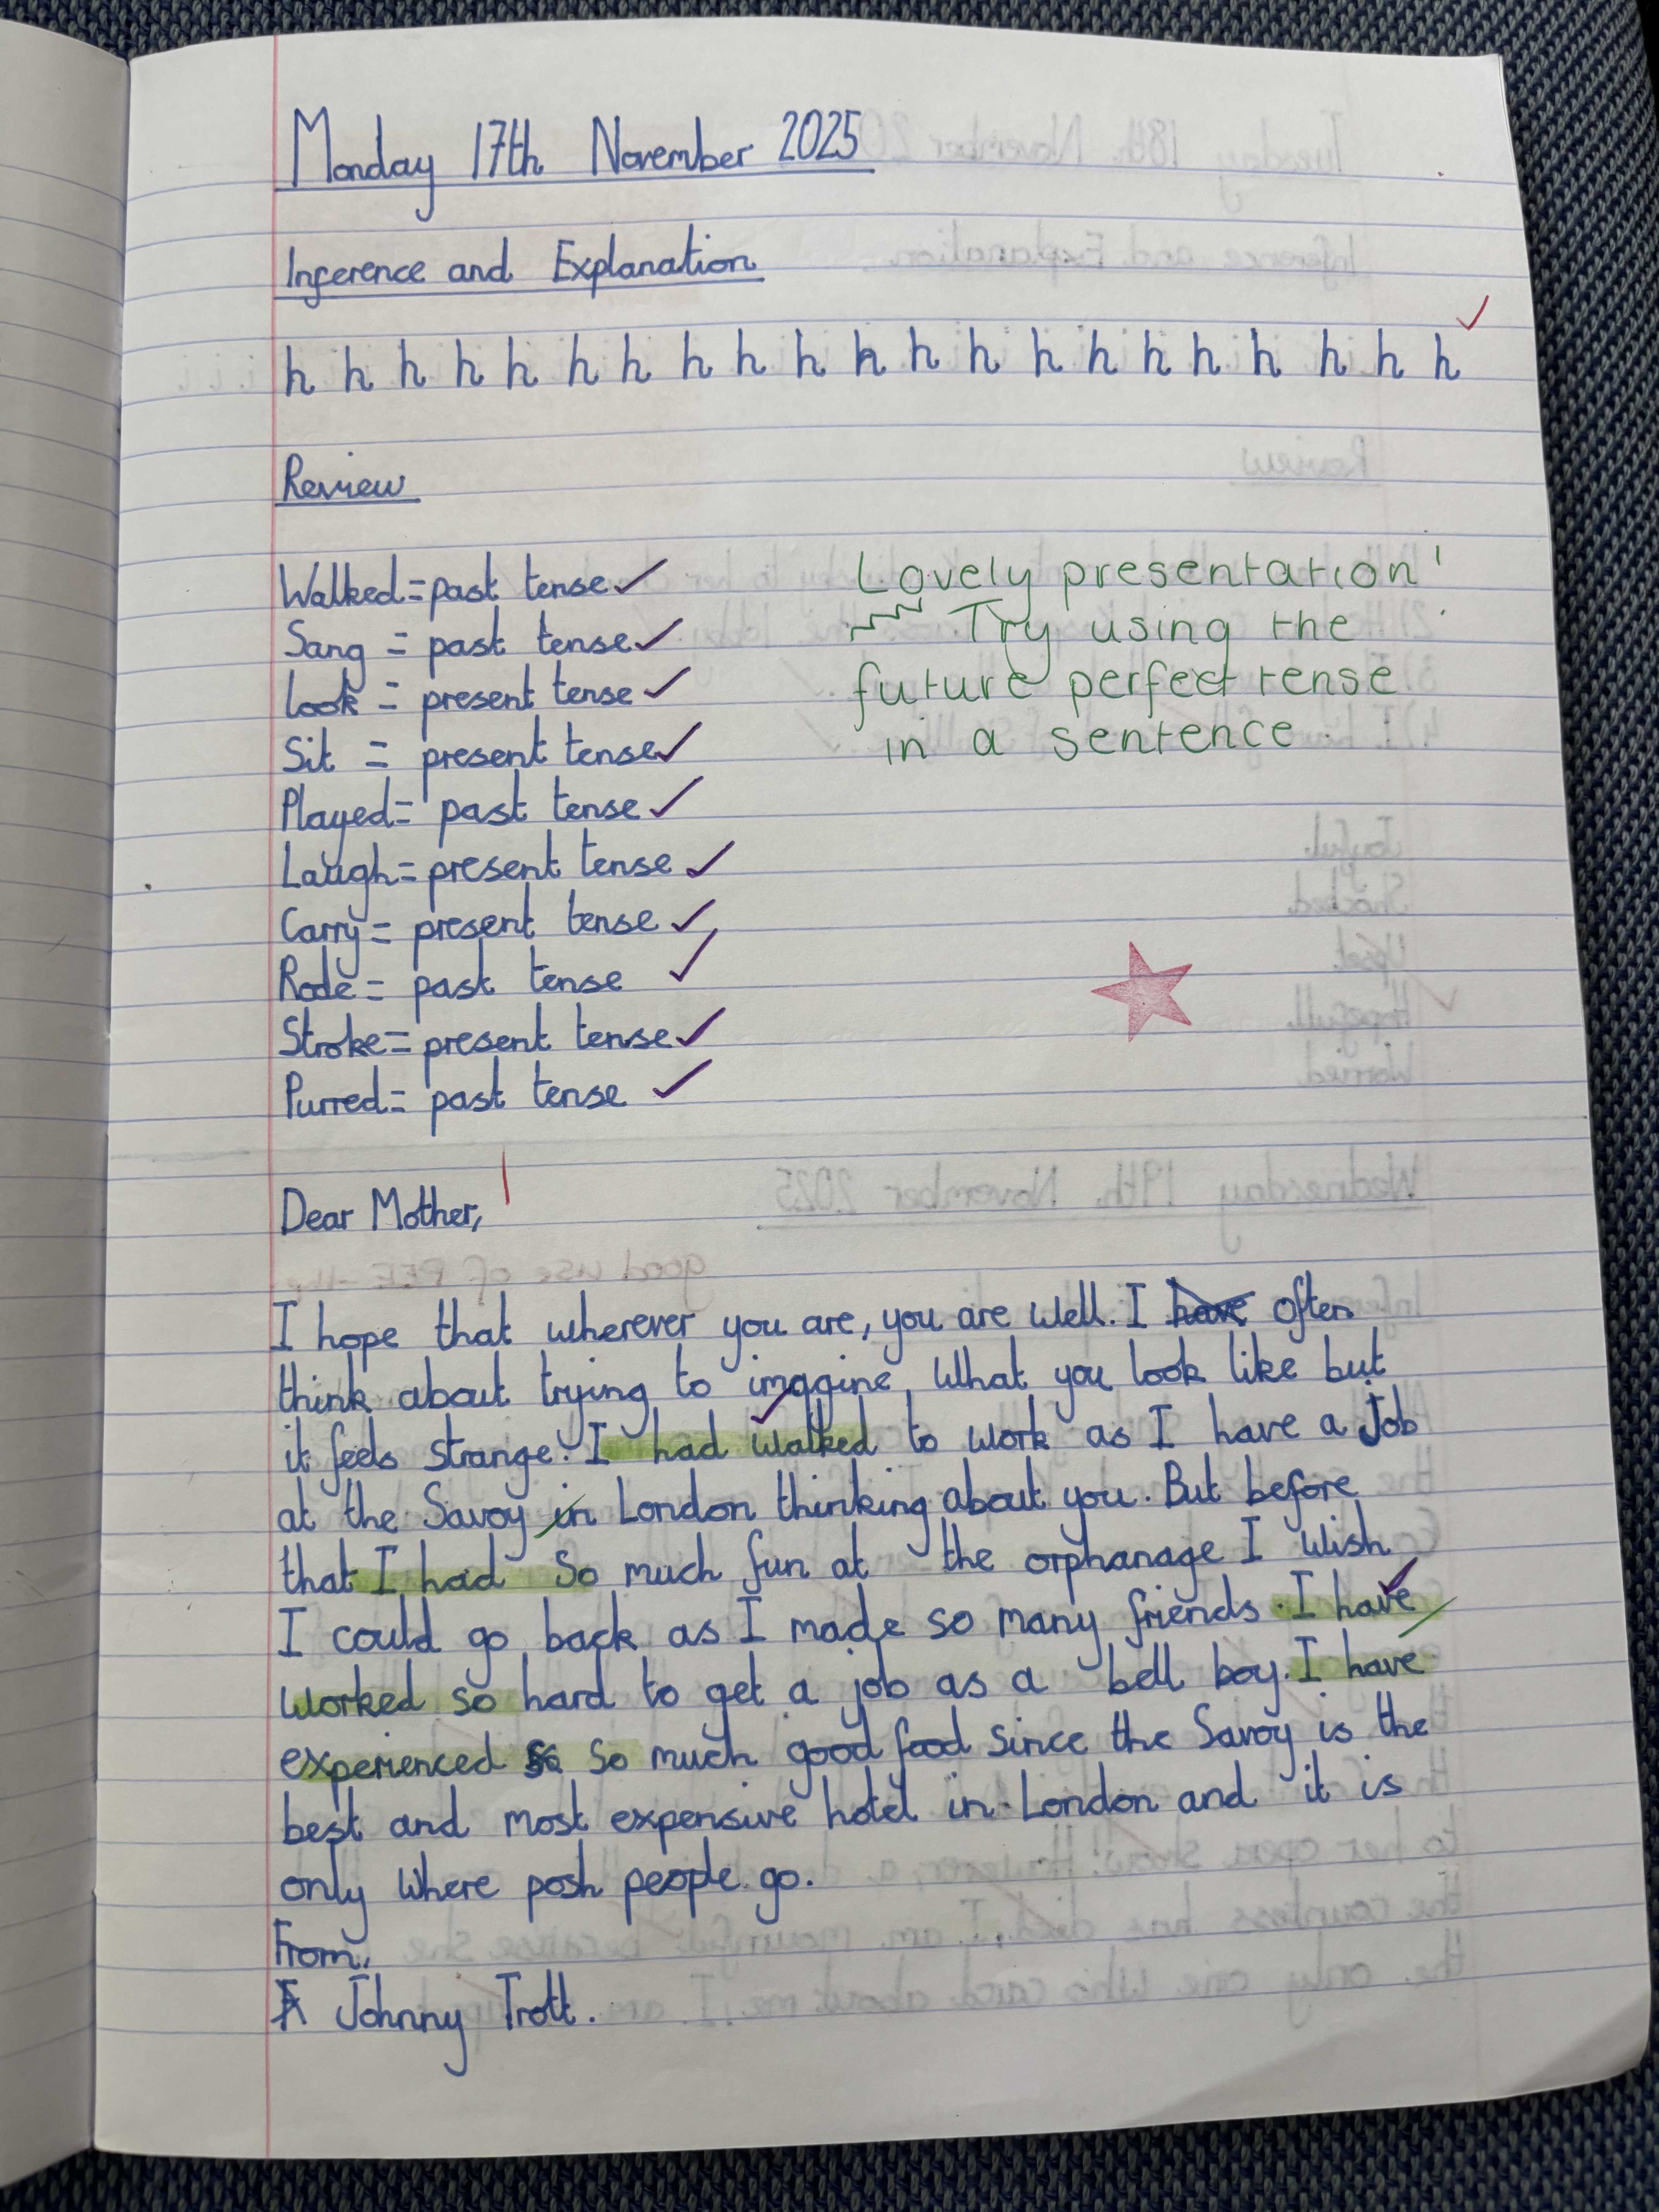 Monday 17th November 2025
Inference and Explanation
h h h h h h h h h h h h h h h h h h h h h
Review
Walked=past tense
Sang = past tense
Look = present tense
Sit = present tense
Played= past tense
Laugh= present tense
Carry= present tense
Rode= past tense
Stroke= present tense
Purred= past tense
Lovely presentation!
Try using the
future perfect tense
in a sentence.
Dear Mother,
I hope that wherever you are, you are well. I have often
think about trying to imagine, What you look like but
it feels strange. I had walked to work as I have a Job
at the Savoy in London thinking about you. But before
that I had So much fun at the orphanage I wish
I could go back as I made so many friends. I have
worked so hard to get a job as a bell boy. I have
experienced so So much good food since the Savoy is the
best and most expensive hotel in London and it is
only where posh people go.
From,
Johnny Trott.